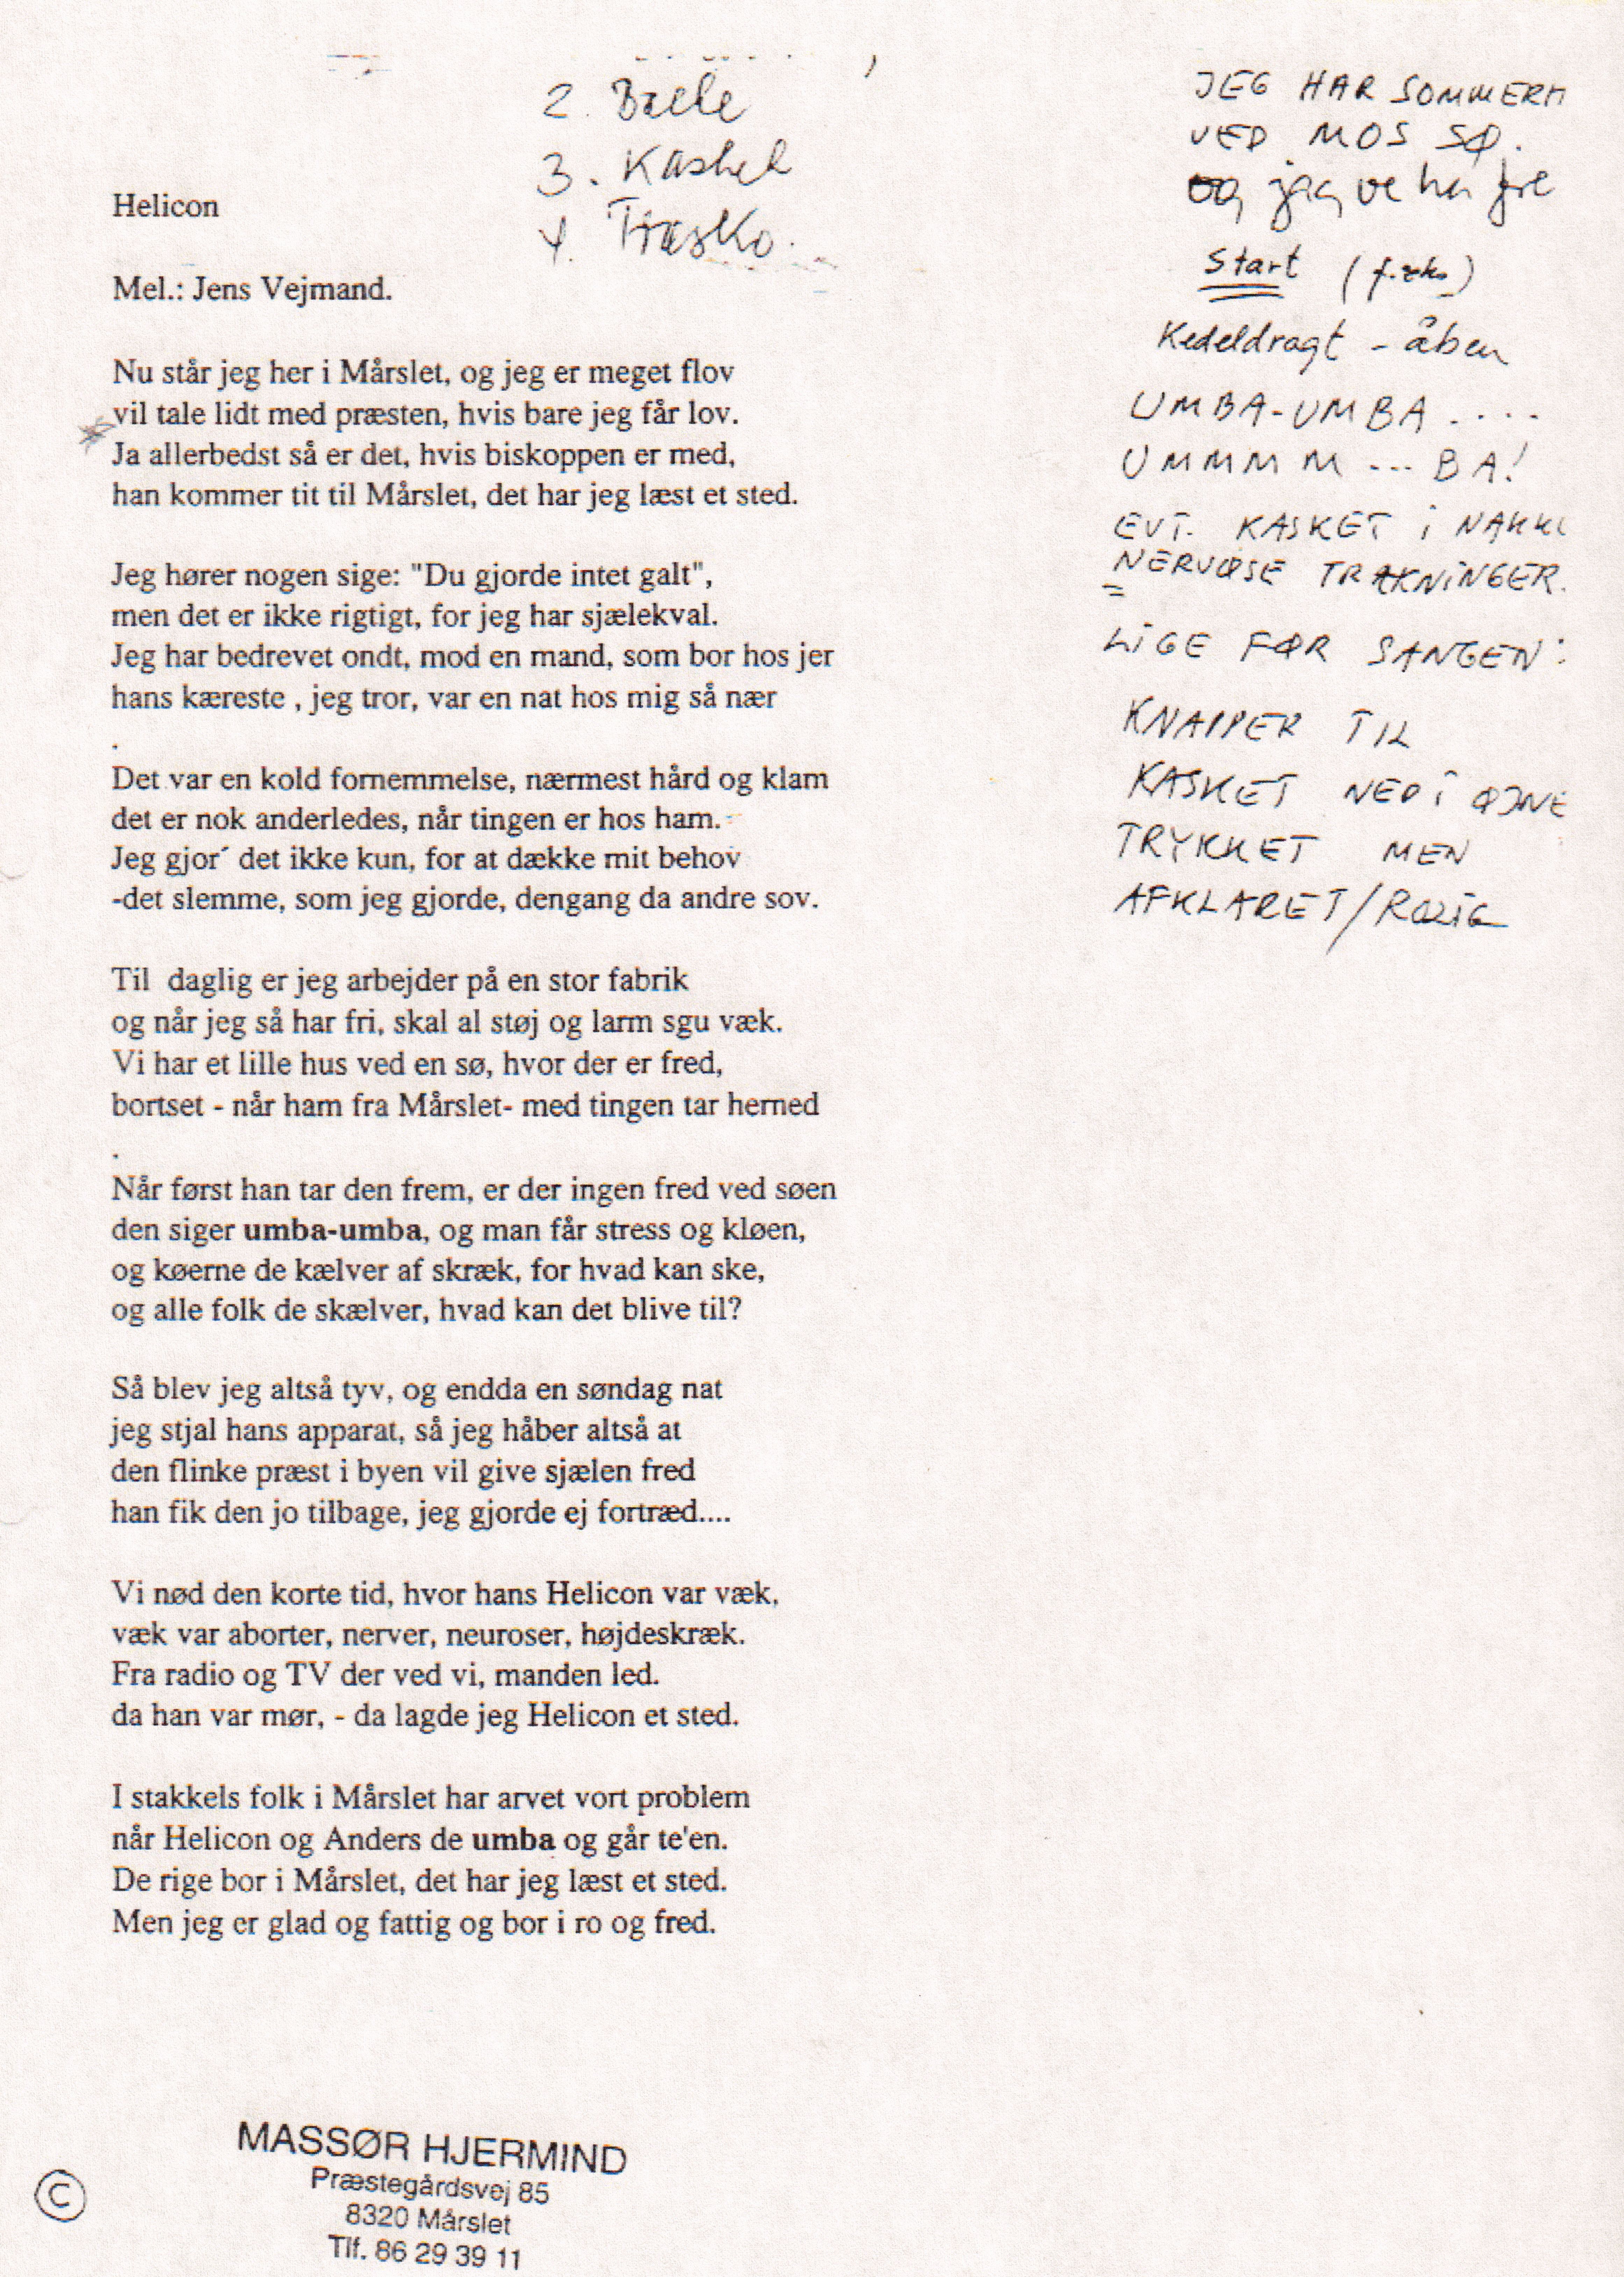 2. Bælte
3. Kasket
4. Træsko.
Helicon
Mel.: Jens Vejmand.
Nu står jeg her i Mårslet, og jeg er meget flov
vil tale lidt med præsten, hvis bare jeg får lov.
Ja allerbedst så er det, hvis biskoppen er med,
han kommer tit til Mårslet, det har jeg læst et sted.
Jeg hører nogen sige: "Du gjorde intet galt",
men det er ikke rigtigt, for jeg har sjælekval.
Jeg har bedrevet ondt, mod en mand, som bor hos jer
hans kæreste , jeg tror, var en nat hos mig så nær
.
Det var en kold fornemmelse, nærmest hård og klam
det er nok anderledes, når tingen er hos ham.
Jeg gjor´ det ikke kun, for at dække mit behov
-det slemme, som jeg gjorde, dengang da andre sov.
Til daglig er jeg arbejder på en stor fabrik
og når jeg så har fri, skal al støj og larm sgu væk.
Vi har et lille hus ved en sø, hvor der er fred,
bortset - når ham fra Mårslet- med tingen tar herned
.
Når først han tar den frem, er der ingen fred ved søen
den siger umba-umba, og man får stress og kløen,
og køerne de kælver af skræk, for hvad kan ske,
og alle folk de skælver, hvad kan det blive til?
Så blev jeg altså tyv, og endda en søndag nat
jeg stjal hans apparat, så jeg håber altså at
den flinke præst i byen vil give sjælen fred
han fik den jo tilbage, jeg gjorde ej fortræd....
Vi nød den korte tid, hvor hans Helicon var væk,
væk var aborter, nerver, neuroser, højdeskræk.
Fra radio og TV der ved vi, manden led.
da han var mør, - da lagde jeg Helicon et sted.
I stakkels folk i Mårslet har arvet vort problem
når Helicon og Anders de umba og går te'en.
De rige bor i Mårslet, det har jeg læst et sted.
Men jeg er glad og fattig og bor i ro og fred.
JEG HAR SOMMERH
VED MOS SØ.
og jeg
Start (f.eks)
Kedeldragt - åben
UMBA-UMBA ....
UMMMM --- BA!
EVT. KASKET i NAKKE
NERVØSE TRÆKNINGER.
LIGE FØR SANGEN:
KNAPPER TIL
KASKET NED i ØJNE
TRYKKET MEN
AFKLARET/ROLIG
©
MASSØR HJERMIND
Præstegårdsvej 85
8320 Mårslet
Tlf. 86 29 39 11